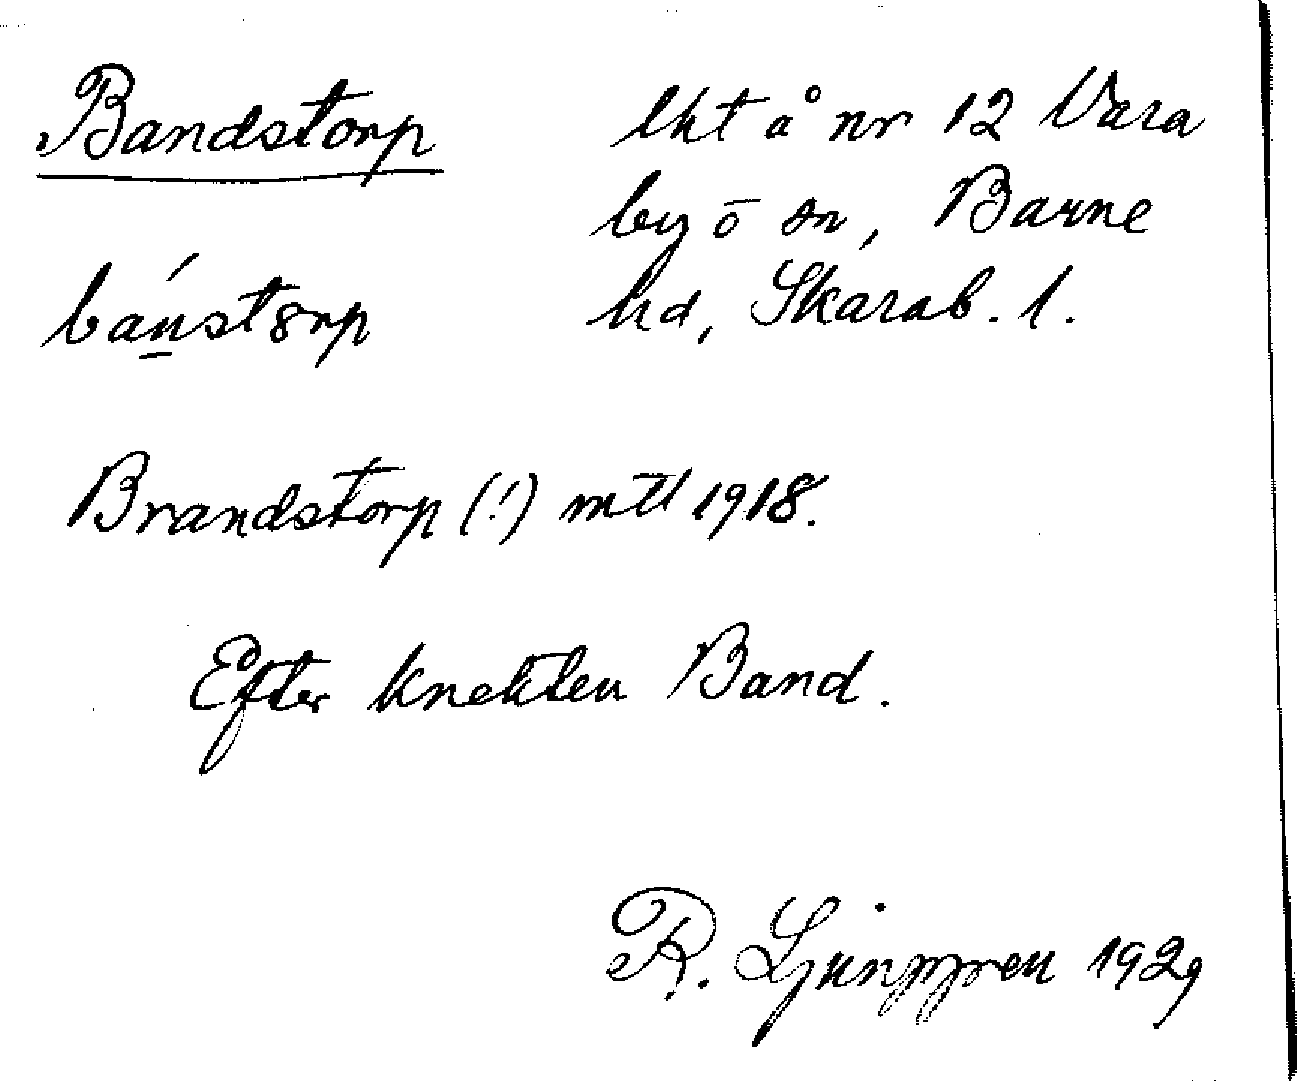 Bandstorp
lkt å nr 12 Vara
by o sn, Barne
hd, Skarab. l.
bánstɷrp
Brandstorp (!) mtl 1918.
Efter knekten Band.
R. Ljunggren 1929